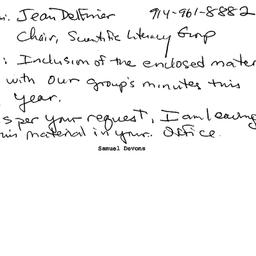 Jean Delfiner 914-961-8882
Chair, Scientific Literacy Group
: Inclusion of the enclosed mater
with our group's minutes this
year.
s per your request, I am leaving
his material in your office.
Samuel Devons